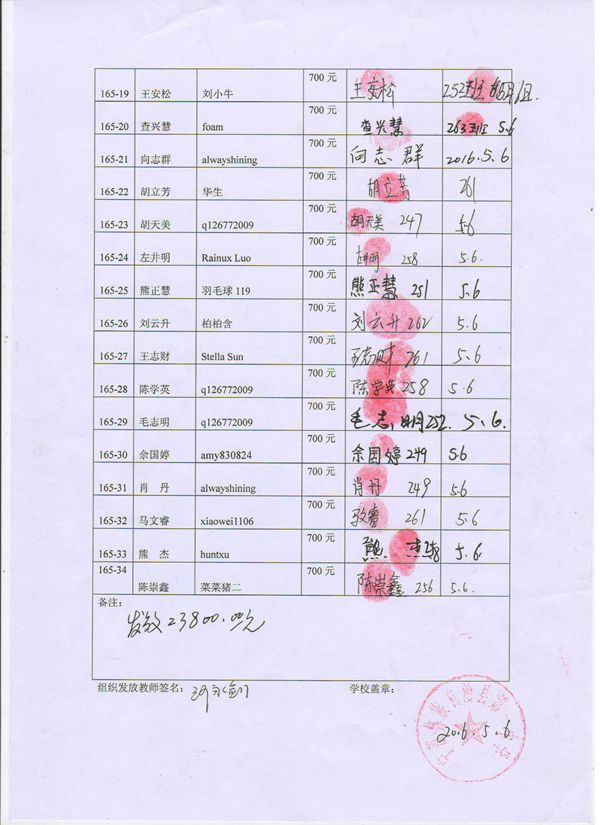 165-19 王安松 刘小牛 700 元 王安松 252班
165-20 查兴慧 foam 700 元 查兴慧 263班 5.6
165-21 向志群 alwayshining 700 元 向志群 2016.5.6
165-22 胡立芳 华生 700 元 胡立芳 261
165-23 胡天美 q126772009 700 元 胡天美 247 5.6
165-24 左井明 Rainux Luo 700 元 258 5.6
165-25 熊正慧 羽毛球 119 700 元 熊正慧 251 5.6
165-26 刘云升 柏柏含 700 元 刘云升 262 5.6
165-27 王志财 Stella Sun 700 元 王志财 261 5.6
165-28 陈学英 q126772009 700 元 陈学英 258 5.6
165-29 毛志明 q126772009 700 元 毛志明 252. 5.6.
165-30 余国婷 amy830824 700 元 余国婷 249 5.6
165-31 肖 丹 alwayshining 700 元 肖丹 249 5.6
165-32 马文睿 xiaowei1106 700 元 261 5.6
165-33 熊 杰 huntxu 700 元 熊杰 5.6
165-34 陈崇鑫 菜菜猪二 700 元 陈崇鑫 256 5.6.
备注：
发放23800.00元
组织发放教师签名： 学校盖章：
2016.5.6